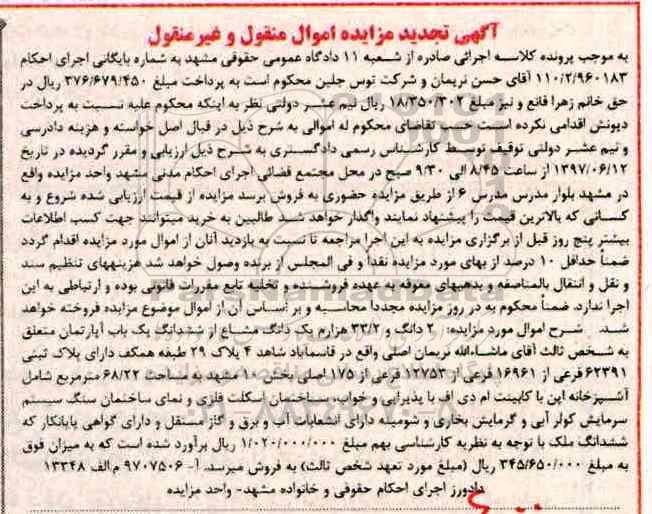 آگهی تجدید مزایده اموال منقول و غیرمنقول
به موجب پرونده کلاسه اجرائی صادره از شعبه ۱۱ دادگاه عمومی حقوقی مشهد به شماره بایگانی اجرای احکام
۱۱۰/۲/۹۶۰۱۸۳ آقای حسن نریمان و شرکت توس جلین محکوم است به پرداخت مبلغ ۳۷۶/۶۷۹/۴۵۰ ریال در
حق خانم زهرا قانع و نیز مبلغ ۱۸/۳۵۰/۳۰۲ ریال نیم عشر دولتی نظر به اینکه محکوم علیه نسبت به پرداخت
دیونش اقدامی نکرده است حسب تقاضای محکوم له اموالی به شرح ذیل در قبال اصل خواسته و هزینه دادرسی
و نیم عشر دولتی توقیف توسط کارشناس رسمی دادگستری به شرح ذیل ارزیابی و مقرر گردیده در تاریخ
۱۳۹۷/۰۶/۱۲ از ساعت ۸/۴۵ الی ۹/۳۰ صبح در محل مجتمع قضائی اجرای احکام مدنی مشهد واحد مزایده واقع
در مشهد بلوار مدرس مدرس ۶ از طریق مزایده حضوری به فروش برسد مزایده از قیمت ارزیابی شده شروع و به
کسانی که بالاترین قیمت را پیشنهاد نمایند واگذار خواهد شد طالبین به خرید میتوانند جهت کسب اطلاعات
بیشتر پنج روز قبل از برگزاری مزایده به این اجرا مراجعه تا نسبت به بازدید آنان از اموال مورد مزایده اقدام گردد
ضمناً حداقل ۱۰ درصد از بهای مورد مزایده نقداً و فی المجلس از برنده وصول خواهد شد هزینههای تنظیم سند
و نقل و انتقال بالمناصفه و بدهیهای معوقه به عهده فروشنده و تخلیه تابع مقررات قانونی بوده و ارتباطی به این
اجرا ندارد. ضمناً محکوم به در روز مزایده مجدداً محاسبه و بر اساس آن از اموال موضوع مزایده فروخته خواهد
شد. شرح اموال مورد مزایده: ۲ دانگ و ۳۳/۲ هزارم یک دانگ مشاع از ششدانگ یک باب آپارتمان متعلق
به شخص ثالث آقای ماشاءالله نریمان اصلی واقع در قاسماباد شاهد ۴ پلاک ۲۹ طبقه همکف دارای پلاک ثبتی
۶۲۳۹۱ فرعی از ۱۶۹۶۱ فرعی از ۱۲۷۵۳ فرعی از ۱۷۵ اصلی بخش ۱۰ مشهد به مساحت ۶۸/۲۲ مترمربع شامل
آشپزخانه اپن با کابینت ام دی اف با پذیرایی و خواب، ساختمان اسکلت فلزی و نمای ساختمان سنگ سیستم
سرمایش کولر آبی و گرمایش بخاری و شومینه دارای انشعابات آب و برق و گاز مستقل و دارای گواهی پایانکار که
ششدانگ ملک با توجه به نظریه کارشناسی بهم مبلغ ۱/۰۲۰/۰۰۰/۰۰۰ ریال برآورد شده است که به میزان فوق
به مبلغ ۳۴۵/۶۵۰/۰۰۰ ریال (مبلغ مورد تعهد شخص ثالث) به فروش میرسد. آ- ۹۷۰۷۵۰۶ م.الف ۱۳۳۴۸
دادورز اجرای احکام حقوقی و خانواده مشهد- واحد مزایده
ParsNamadData